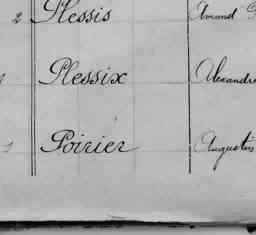 2 Plessis Armand
Plessix Alexandre
Poirier Augustin